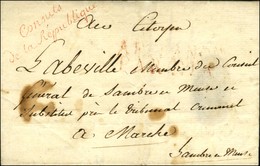 Connés
de la République
Au Citoyen
Labeville Membre du Conseil
général de Sambre et Meuse et
Substitut près le Tribunal Criminel
a Marche
Sambre et Meuse